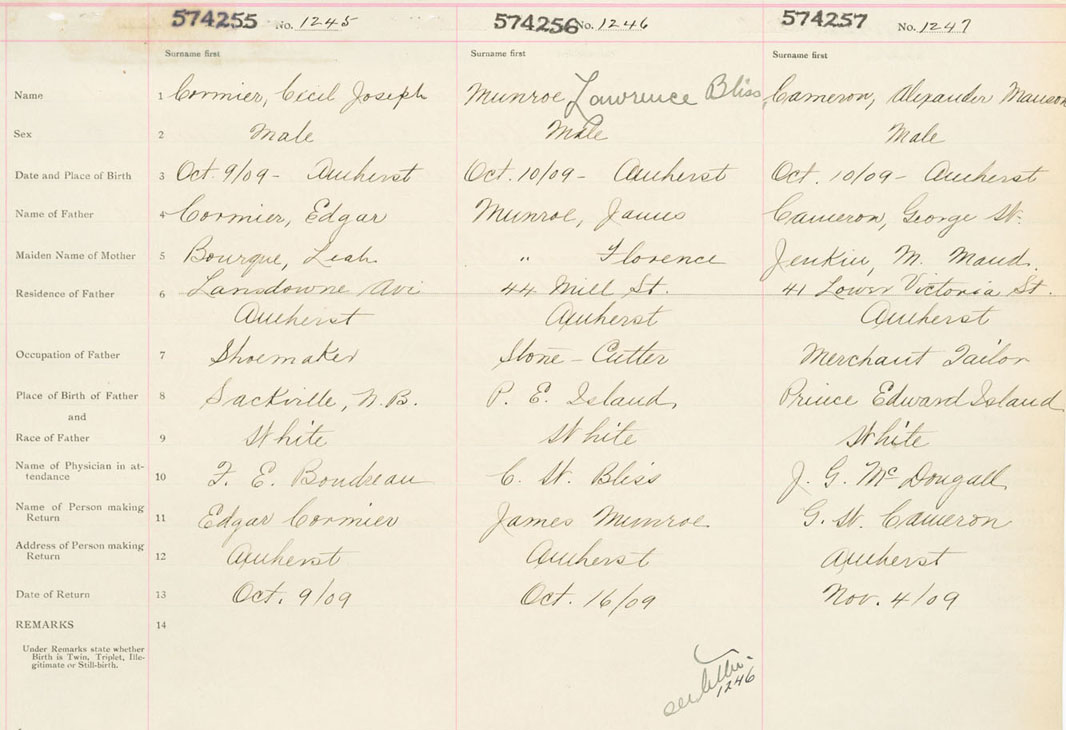 574255 No. 1245 574256 No. 1246 574257 No. 1247
Surname first Surname first Surname first
Name 1 Cormier, Cecil Joseph Munroe Lawrence Bliss Cameron, Alexander Manson
Sex 2 Male Male Male
Date and Place of Birth 3 Oct. 9/09 - Amherst Oct. 10/09 - Amherst Oct. 10/09 - Amherst
Name of Father 4 Cormier, Edgar Munroe, James Cameron, George W.
Maiden Name of Mother 5 Bourque, Leah " Florence Jenkin, M. Maud.
Residence of Father 6 Lansdowne Ave 44 Mill St. 41 Lower Victoria St.
Amherst Amherst Amherst
Occupation of Father 7 Shoemaker Stone-Cutter Merchant Tailor
Place of Birth of Father 8 Sackville, N.B. P. E. Island, Prince Edward Island
and
Race of Father 9 White White White
Name of Physician in at- 10 F. E. Boudreau C. W. Bliss J. G. McDougall
tendance
Name of Person making 11 Edgar Cormier James Munroe G. W. Cameron
Return
Address of Person making 12 Amherst Amherst Amherst
Return
Date of Return 13 Oct. 9/09 Oct. 16/09 Nov. 4/09
REMARKS 14
Under Remarks state whether
Birth is Twin, Triplet, Ille-
gitimate or Still-birth.
see letter
1246